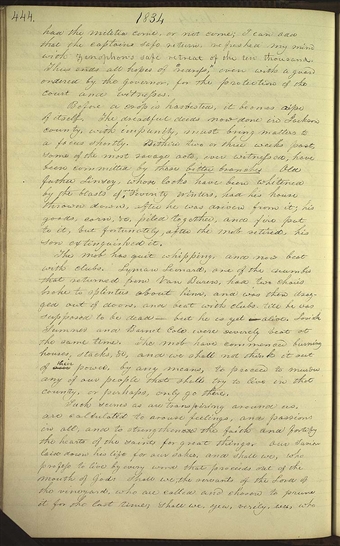 444. 1834
had the militia come, or not come; I can add
that the captains safe return, refreshed my mind
with Zenophon's safe retreat of the ten thousand.
Thus ends all hopes of "redress," even with a guard
ordered by the governor, for the protection of the
court and witnesses.
Before a crop is harvested, it becomes ripe
of itself. The dreadful deeds now done in Jackson
county, with impunity, must bring matters to
a focus shortly. Within two or three weeks past,
some of the most savage acts, ever witnessed, have
been committed by these bitter branches. Old
father Linsey, whose locks have been whitened
by the blasts of seventy winters, had his house
thrown down, after he was driven from it; his
goods, corn, &c, piled together, and fire put
to it, but fortunately, after the mob retired, his
son extinguished it.
The mob has quit whipping, and now beat
with clubs. Lyman Leonard, one of the number
that returned from Van Buren, had two chairs
broke to splinters about him, and was then drag-
ged out of doors, and beat with clubs till he was
supposed to be dead — but he is yet alive. Josiah
Sumner and Barnet Cole were severely beat at
the same time. The mob have commenced burning
houses, stacks, &c, and we shall not think it out
of their power, by any means, to proceed to murder
any of our people that shall try to live in that
county, or perhaps, only go there.
Such scenes as are transpiring around us,
are calculated to arouse feelings, and passions
in all, and to strengthen the faith and fortify
the hearts of the saints for great things. our Savior
laid down his life for our sakes, and shall we, who
profess to live by every word that proceeds out of the
mouth of God: Shall we, the servants of the Lord of
the vineyard, who are called and chosen to prune
it for the last time; Shall we, yea, verily, we, who